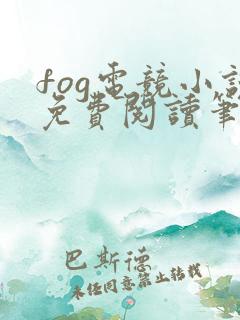 fog電競小說
免費閱讀筆
巴斯德
未經同意禁止轉載